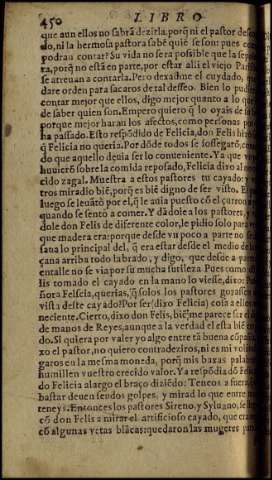 450 LIBRO
que aun ellos no sabrã dezirla, porq̃ ni el pastor desea
do, ni la hermosa pastora sabẽ quiẽ se son: pues como
podran contar? Su vida no sera possible que la sepa
ra, porq̃ no està en parte, por estar alli el viejo Par
se atreuan a contarla. Pero dexadme el cuydado, que
dare orden para sacaros de tal desseo. Bien lo pud
contar mejor que ellos, digo mejor quanto a lo que
de saber quien son. Empero quiero q̃ lo oyais de
porque mejor haràn los afectos, como personas po
ha passado. Esto respõdido de Felicia, don Felis hizo
q̃ Felicia no queria. Por dõde todos se sossegarõ,
do que aquello deuia ser lo conueniente. Ya que vn
huuierõ sobre la comida reposado, Felicia dixo al
cido zagal. Muestra a estos pastores tu cayado: y
tros miradlo biẽ, porq̃ es biẽ digno de ser visto. El
luego se leuãtò por el, q̃ le auia puesto cõ el currõ
quando se sentò a comer. Y dãdole a los pastores, y
dole don Felis de diferente color, le pidio solo para
que madera era: porque desde vn poco a parte no se
sana lo principal del, q̃ era estar desde el medio de
çana arriba todo labrado, y digo, que desde a par
entalle no se via por su mucha sutileza. Pues como
lis tomado el cayado en la mano lo viesse, dixo:
ñora Felicia, querias, q̃ solos los pastores gozassẽ
vista deste cayado? Por ser (dixo Felicia) cosa a ellos
neciente. Cierto, dixo don Felis, biẽ me parece
de manos de Reyes, aunque a la verdad el esta biẽ
do. Si quiera por valer yo algo entre tã buena cõpañ
xo el pastor, no quiero contradeziros, ni es mi volũ
garos en la mesma moneda, porq̃ mis baxas palab
humillen vuestro crecido valor. Ya respõdia dõ Fel
do Felicia alargo el braço diziẽdo: Teneos a fuera,
bastar deuen sendos golpes, y mirad lo que entre m
teneys. Entonces los pastores Sireno, y Syluano, se
cõ don Felis a mirar el artificioso cayado, que era
cõ algunas vetas blãcas: quedaron las mugeres jun